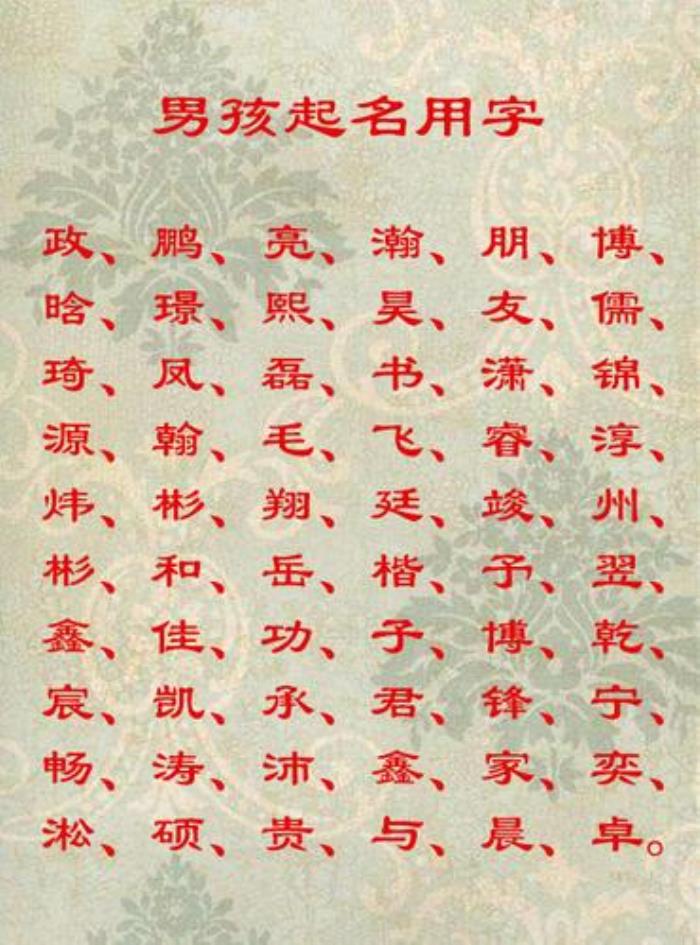 男孩起名用字
政、鹏、亮、瀚、朋、博、
晗、璟、熙、昊、友、儒、
琦、凤、磊、书、潇、锦、
源、翰、毛、飞、睿、淳、
炜、彬、翔、廷、竣、州、
彬、和、岳、楷、予、翌、
鑫、佳、功、子、博、乾、
宸、凯、承、君、锋、宁、
畅、涛、沛、鑫、家、奕、
淞、硕、贵、与、晨、卓。